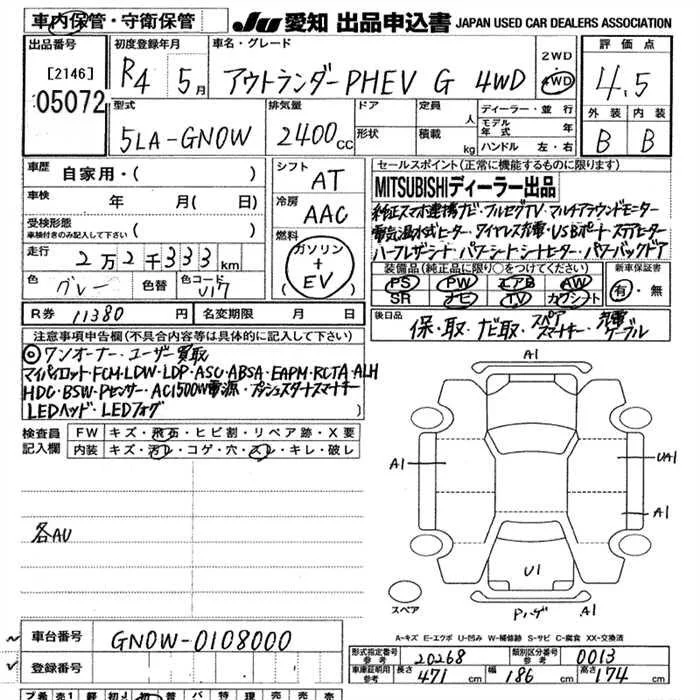 車内保管・守衛保管
JU 愛知 出品申込書 JAPAN USED CAR DEALERS ASSOCIATION
出品番号
[2146]
05072
初度登録年月
R4 5月
車名・グレード
アウトランダーPHEV G 4WD
2WD
4WD
評価点
4.5
外装 内装
B B
型式
5LA-GN0W
排気量
2400cc
ドア
形状
定員 人
積載 kg
ディーラー・並行
モデル年式 年
ハンドル 左・右
車歴 自家用・( )
車検 年 月( 日)
受検形態
車検付きのみ記入して下さい ( )
走行 2万2千333km
色 グレー 色替 色コード U17
シフト AT
冷房 AAC
燃料
(ガソリン + EV)
R券 11380円 名変期限 月 日
セールスポイント(正常に機能するものに限ります)
MITSUBISHIディーラー出品
純正スマホ連携ナビ・フルセグTV・マルチアラウンドモニター
電気温水式ヒーター・ワイヤレス充電・USBポート・ステアヒーター
ハーフレザーシート・パワーシート・シートヒーター・パワーバックドア
装備品(純正品に限り○をつけてください)
PS PW エアB AW
SR ナビ TV カワシート
新車保証書
有・無
後日品 保・取・ナビ取・スペアスマートキー・充電ケーブル
注意事項申告欄(不具合内容等は具体的に記入して下さい)
◎ワンオーナー・ユーザー買取
マイパイロット・FCM・LDW・LDP・ASC・ABSA・EAPM・RCTA・ALH
HDC・BSW・Pセンサー・AC1500W電源・プッシュスタートスマートキー
LEDヘッド・LEDフォグ )
検査員記入欄
FW キズ・飛石・ヒビ割・リペア跡・X要
内装 キズ・汚レ・コゲ・穴・スレ・キレ・破レ
各AU
A1
A1
UA1
A1
U1
スペア
Pハーゲ
A1
A-キズ E-エクボ U-凹み W-補修跡 S-サビ C-腐食 XX-交換済
車台番号 GN0W-0108000
登録番号
型式指定番号 参考 20268 類別区分番号 参考 0013
車庫証明用 参考 長さ 471cm 幅 186cm 高さ 174cm